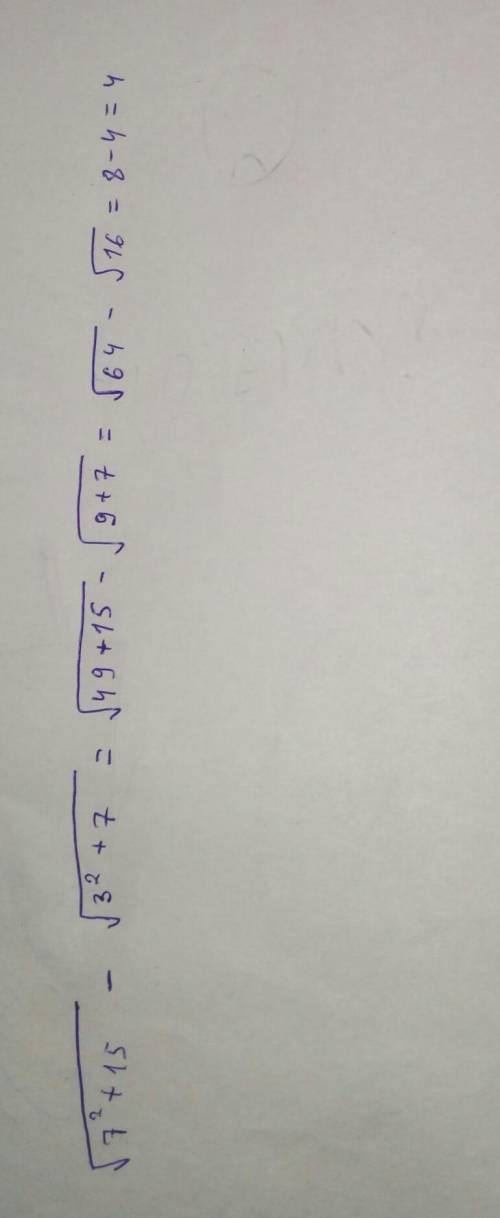 √(7² + 15) - √(3² + 7) = √(49 + 15) - √(9 + 7) = √64 - √16 = 8 - 4 = 4